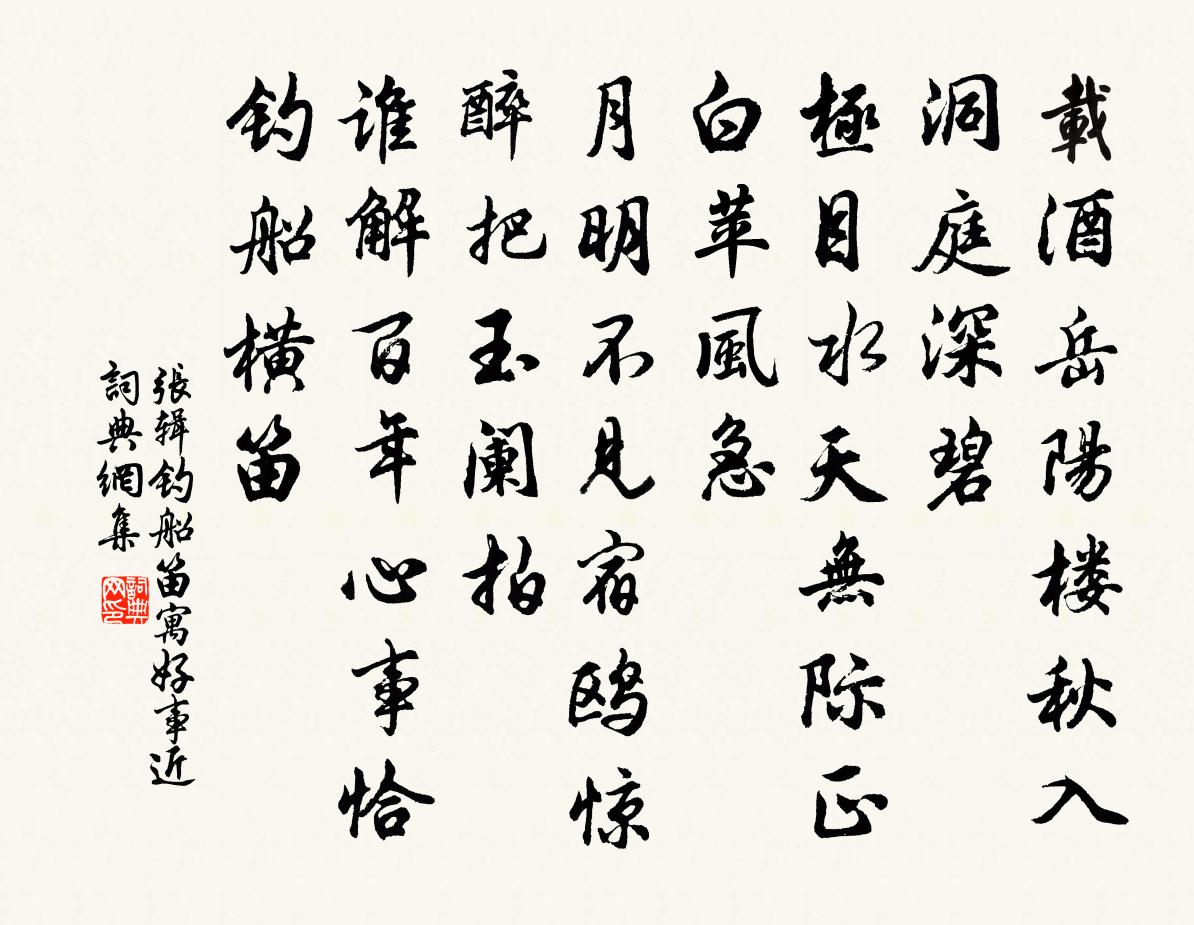 載酒岳陽楼秋入
洞庭深碧
極目水天無际正
白苹風急
月明不見宿鸥惊
醉把玉阑拍
谁解百年心事恰
钓船横笛
張辑钓船笛寓好事近
詞典網集
詞典网印